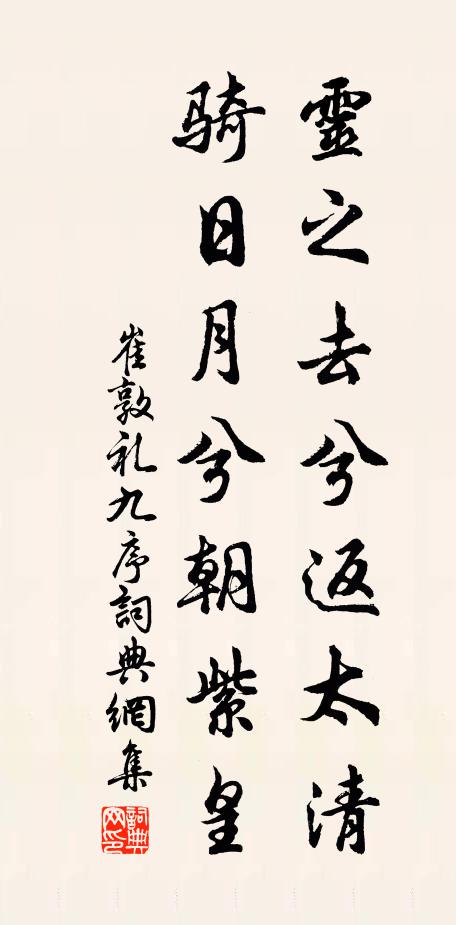 靈之去兮返太清
騎日月兮朝紫皇
崔敦礼九序詞典網集
詞典網印